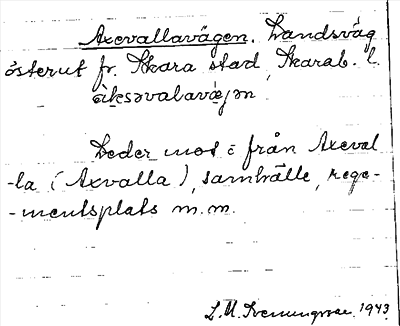 Axevallavägen. Landsväg
österut fr. Skara stad, Skarab. l.
àksavalavæ̀jən
Leder mot o från Axeval
-la (Axvalla), samhälle, rege-
-mentsplats m.m.
1943